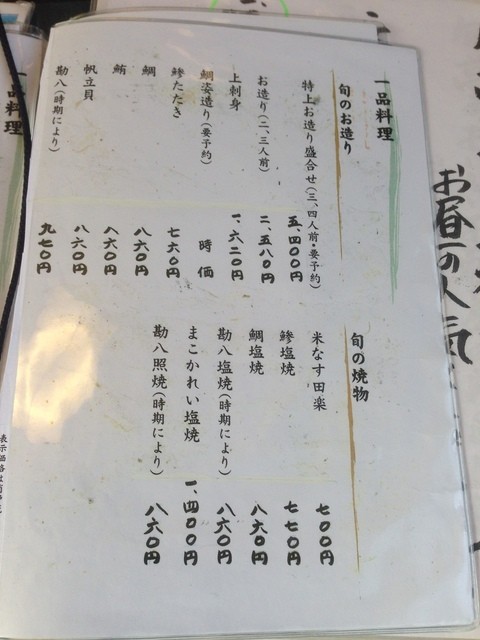 一品料理
旬のお造り
特上お造り盛合せ(三、四人前・要予約) 五、四〇〇円
お造り(二、三人前) 二、五八〇円
上刺身 一、六二〇円
鯛姿造り(要予約) 時価
鯵たたき 七六〇円
鯛 八六〇円
鮪 八六〇円
帆立貝 八六〇円
勘八(時期により) 九七〇円
旬の焼物
米なす田楽 七〇〇円
鯵塩焼 七七〇円
鯛塩焼 八六〇円
勘八塩焼(時期により) 八六〇円
まこかれい塩焼 一、四〇〇円
勘八照焼(時期により) 八六〇円
お昼の人気
品料理
表示価格は